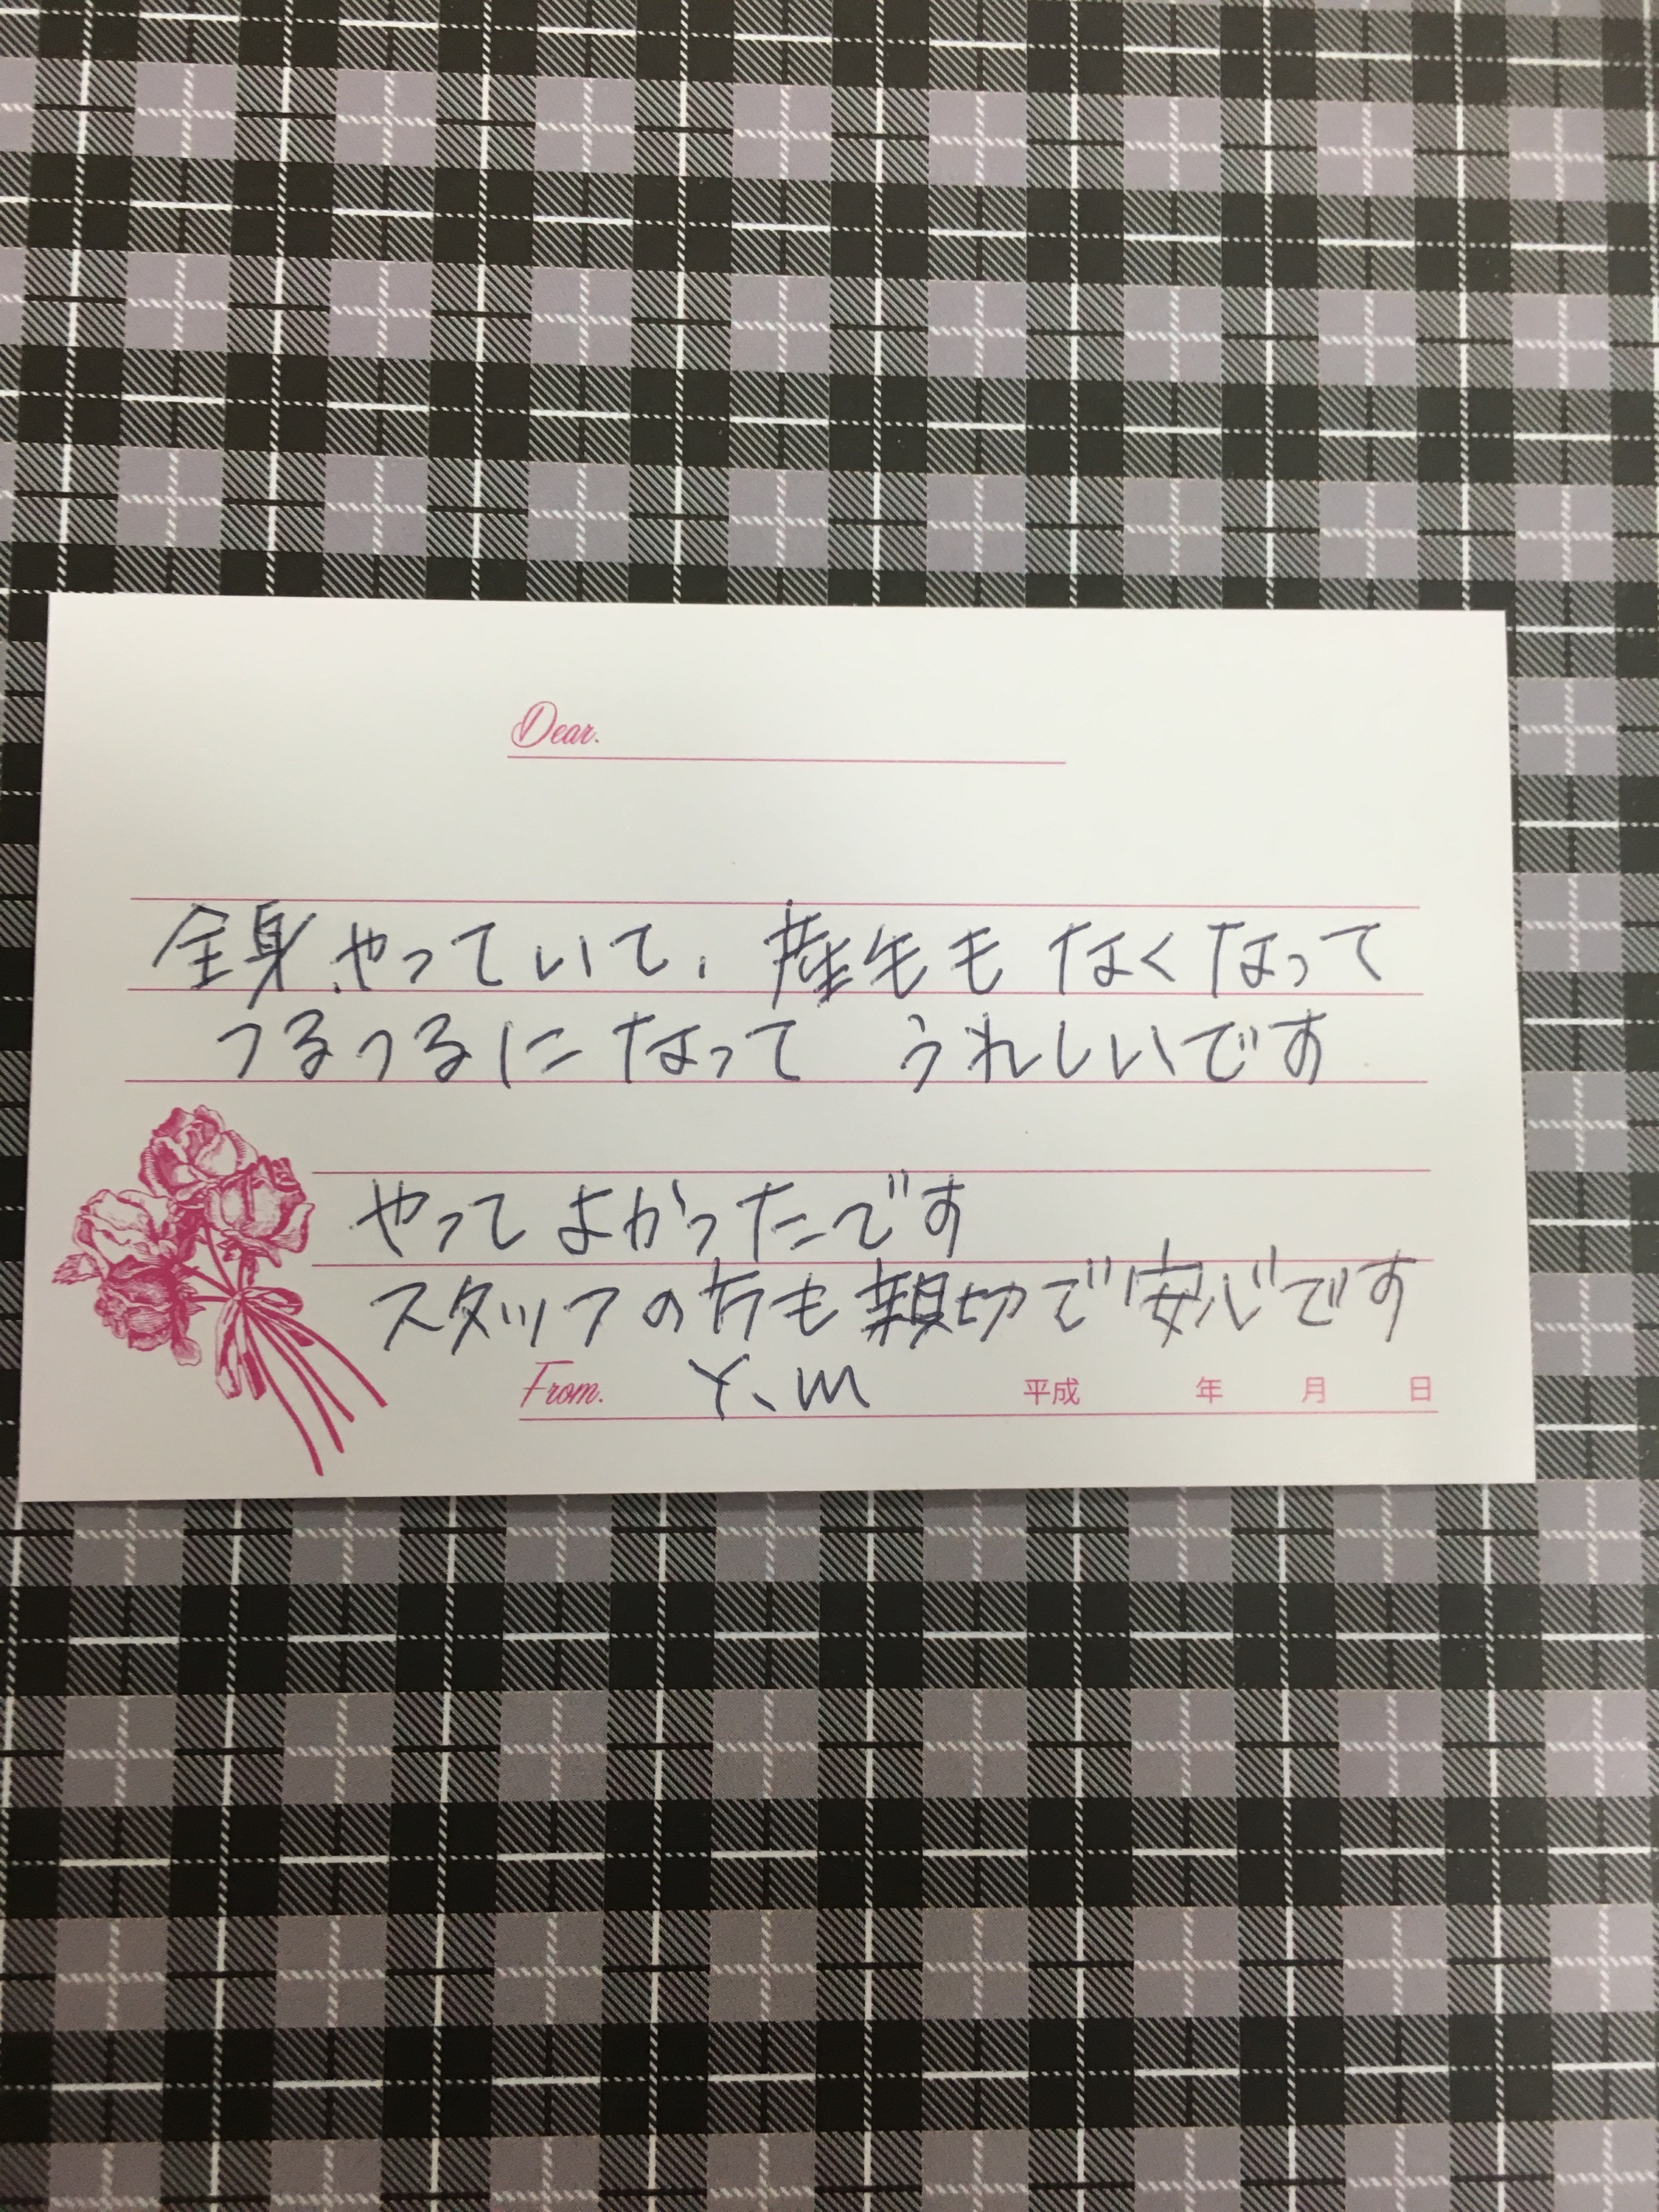 Dear.
全身やっていて、産毛もなくなって
つるつるになって うれしいです
やってよかったです
スタッフの方も親切で安心です
From. Y、m 平成 年 月 日